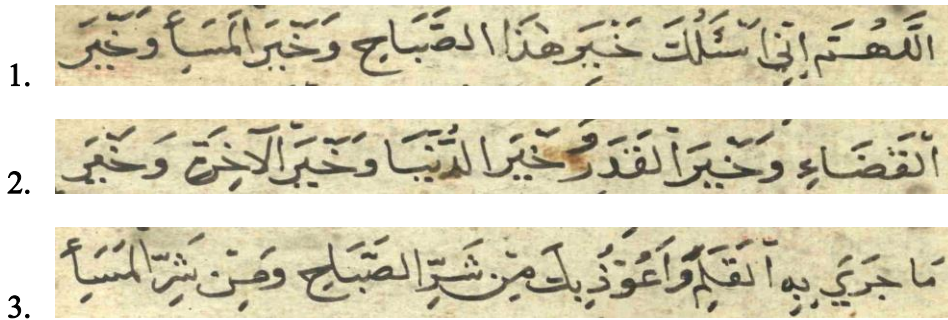 1. اللهم اني اسئلك خير هذا الصباح وخير المسأ وخير
2. القضاء وخير القدر وخير الدنيا وخير الآخرة وخير
3. ما جري به القلم واعوذ بك من شر الصباح ومن شر المسأ